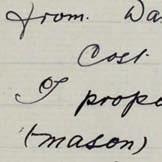 from. Da
Cost.
I propo
(mason)